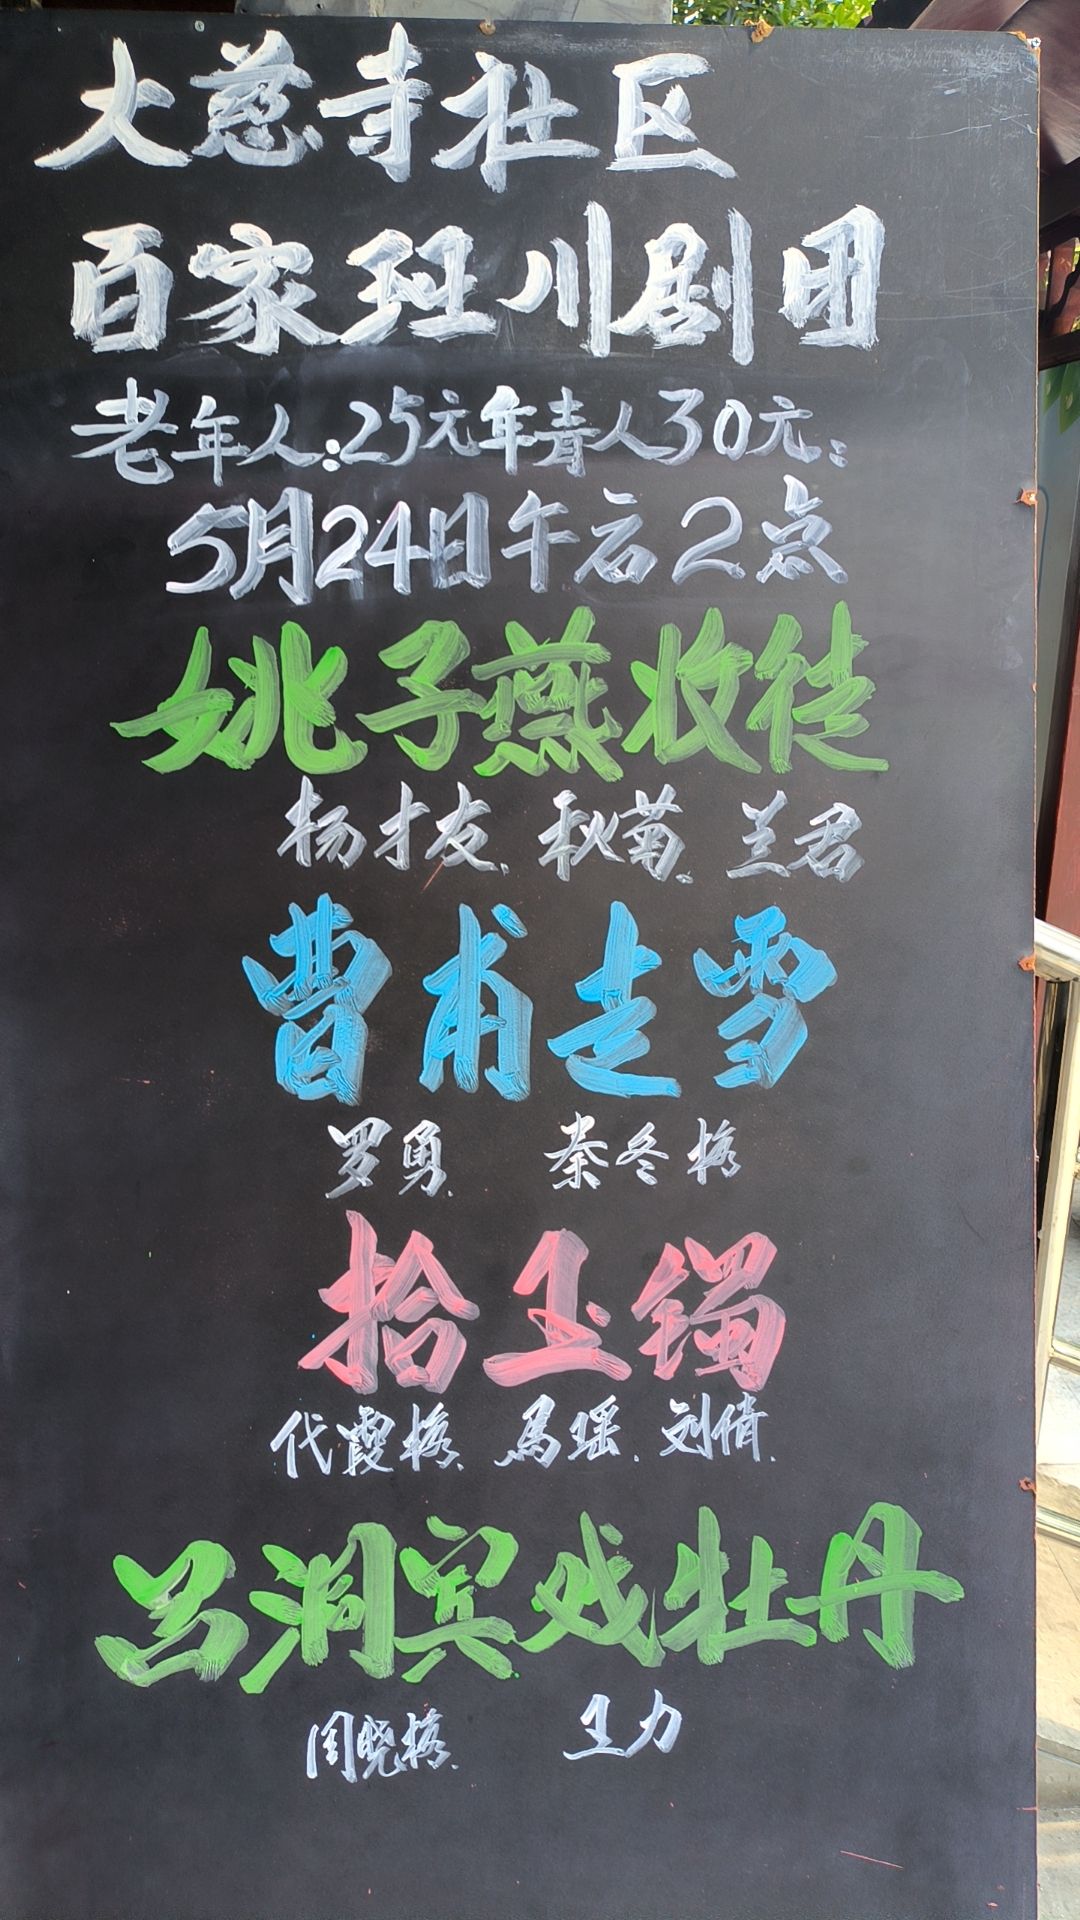 大慈寺社区
百家班川剧团
老年人:25元年青人30元:
5月24日午后2点
姚子燕收徒
杨才友.秋菊.兰君
曹甫走雪
罗勇. 秦冬梅
拾玉镯
代霞梅.馬瑶.刘倩.
吕洞宾戏牡丹
周晓梅. 王力